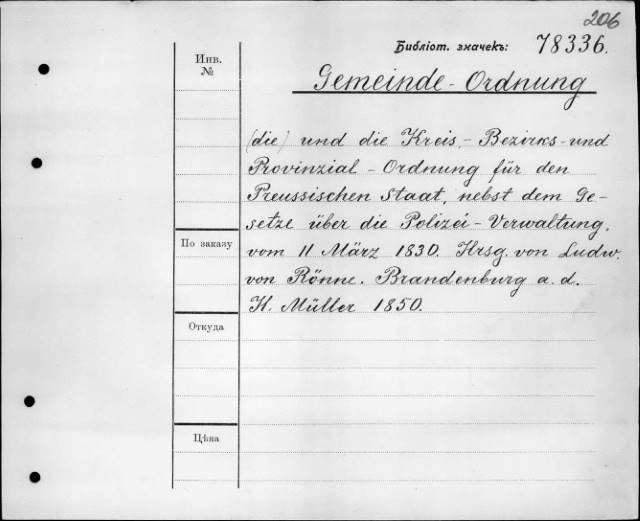 206
Библіот. значекъ: 78336.
Инв.
№
Gemeinde-Ordnung
(die) und die Kreis,- Bezirks-und
Provinzial-Ordnung für den
Preussischen Staat, nebst dem Ge-
setze über die Polizei-Verwaltung.
По заказу
vom 11 März 1830. Hrsg. von Ludw.
von Rönne. Brandenburg a. d.
H. Müller 1850.
Откуда
Цѣна